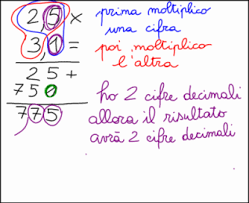 2,5 x prima moltiplico
una cifra
3,1 = poi moltiplico
l'altra
25+
750 ho 2 cifre decimali
7,75 allora il risultato
avrà 2 cifre decimali